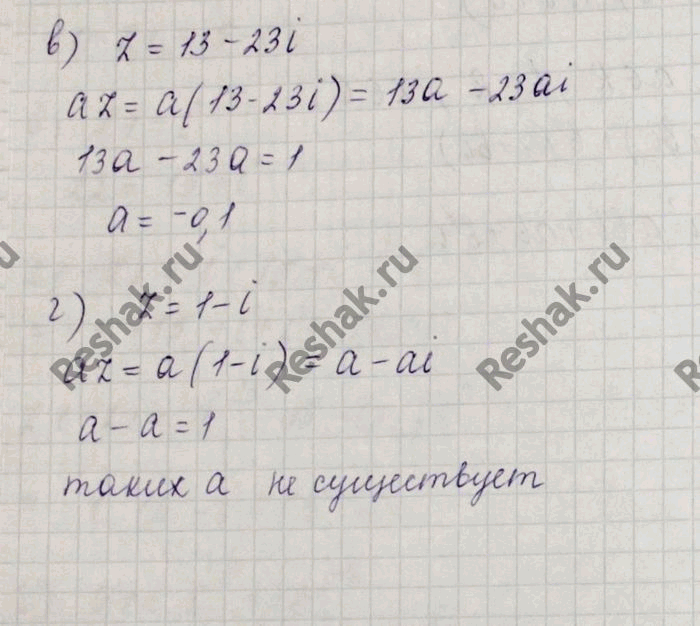 в) z = 13 - 23i
az = a(13-23i) = 13a - 23ai
13a - 23a = 1
a = -0,1
г) z = 1-i
az = a(1-i) = a - ai
a - a = 1
таких a не существует
Reshak.ru
Reshak.ru
Reshak.ru